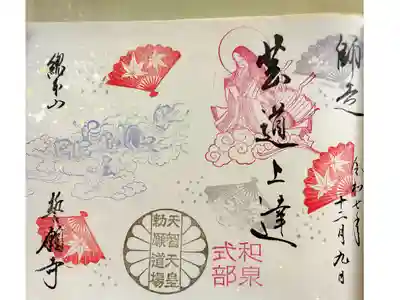 師走
令和七年
十二月九日
芸道上達
和泉
式部
天智天皇
勅願道場
総本山
誓願寺